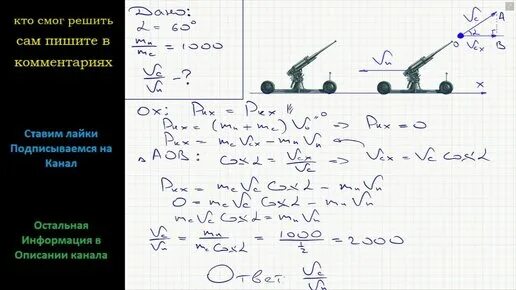 кто смог решить
сам пишите в
комментариях
Ставим лайки
Подписываемся на
Канал
Остальная
Информация в
Описании канала
Дано:
α = 60°
mп/mс = 1000
Vс/Vп - ?
Vс A
O α B
Vсх
Vп
x
Ox: Pнх = Pкх
Pнх = (mп + mс) Vп⁼⁰ => Pнх = 0
Pкх = mс Vсх - mп Vп
▵ AOB: Cosα = Vсх/Vс => Vсх = Vс Cosα
Pкх = mс Vс Cosα - mп Vп
0 = mс Vс Cosα - mп Vп
mс Vс Cosα = mп Vп
Vс/Vп = mп/mс Cosα = 1000/½ = 2000
Ответ Vс/Vп